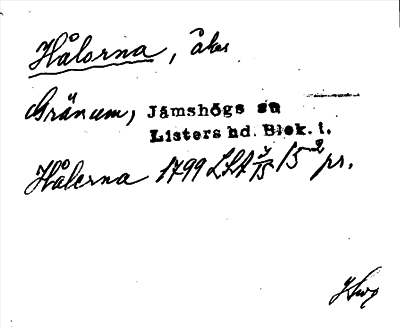 Hålorna, åker
Gränum, Jämshögs sn
Listers hd. Blek. l.
Hålerna 1799 LSA 15 2 pr.